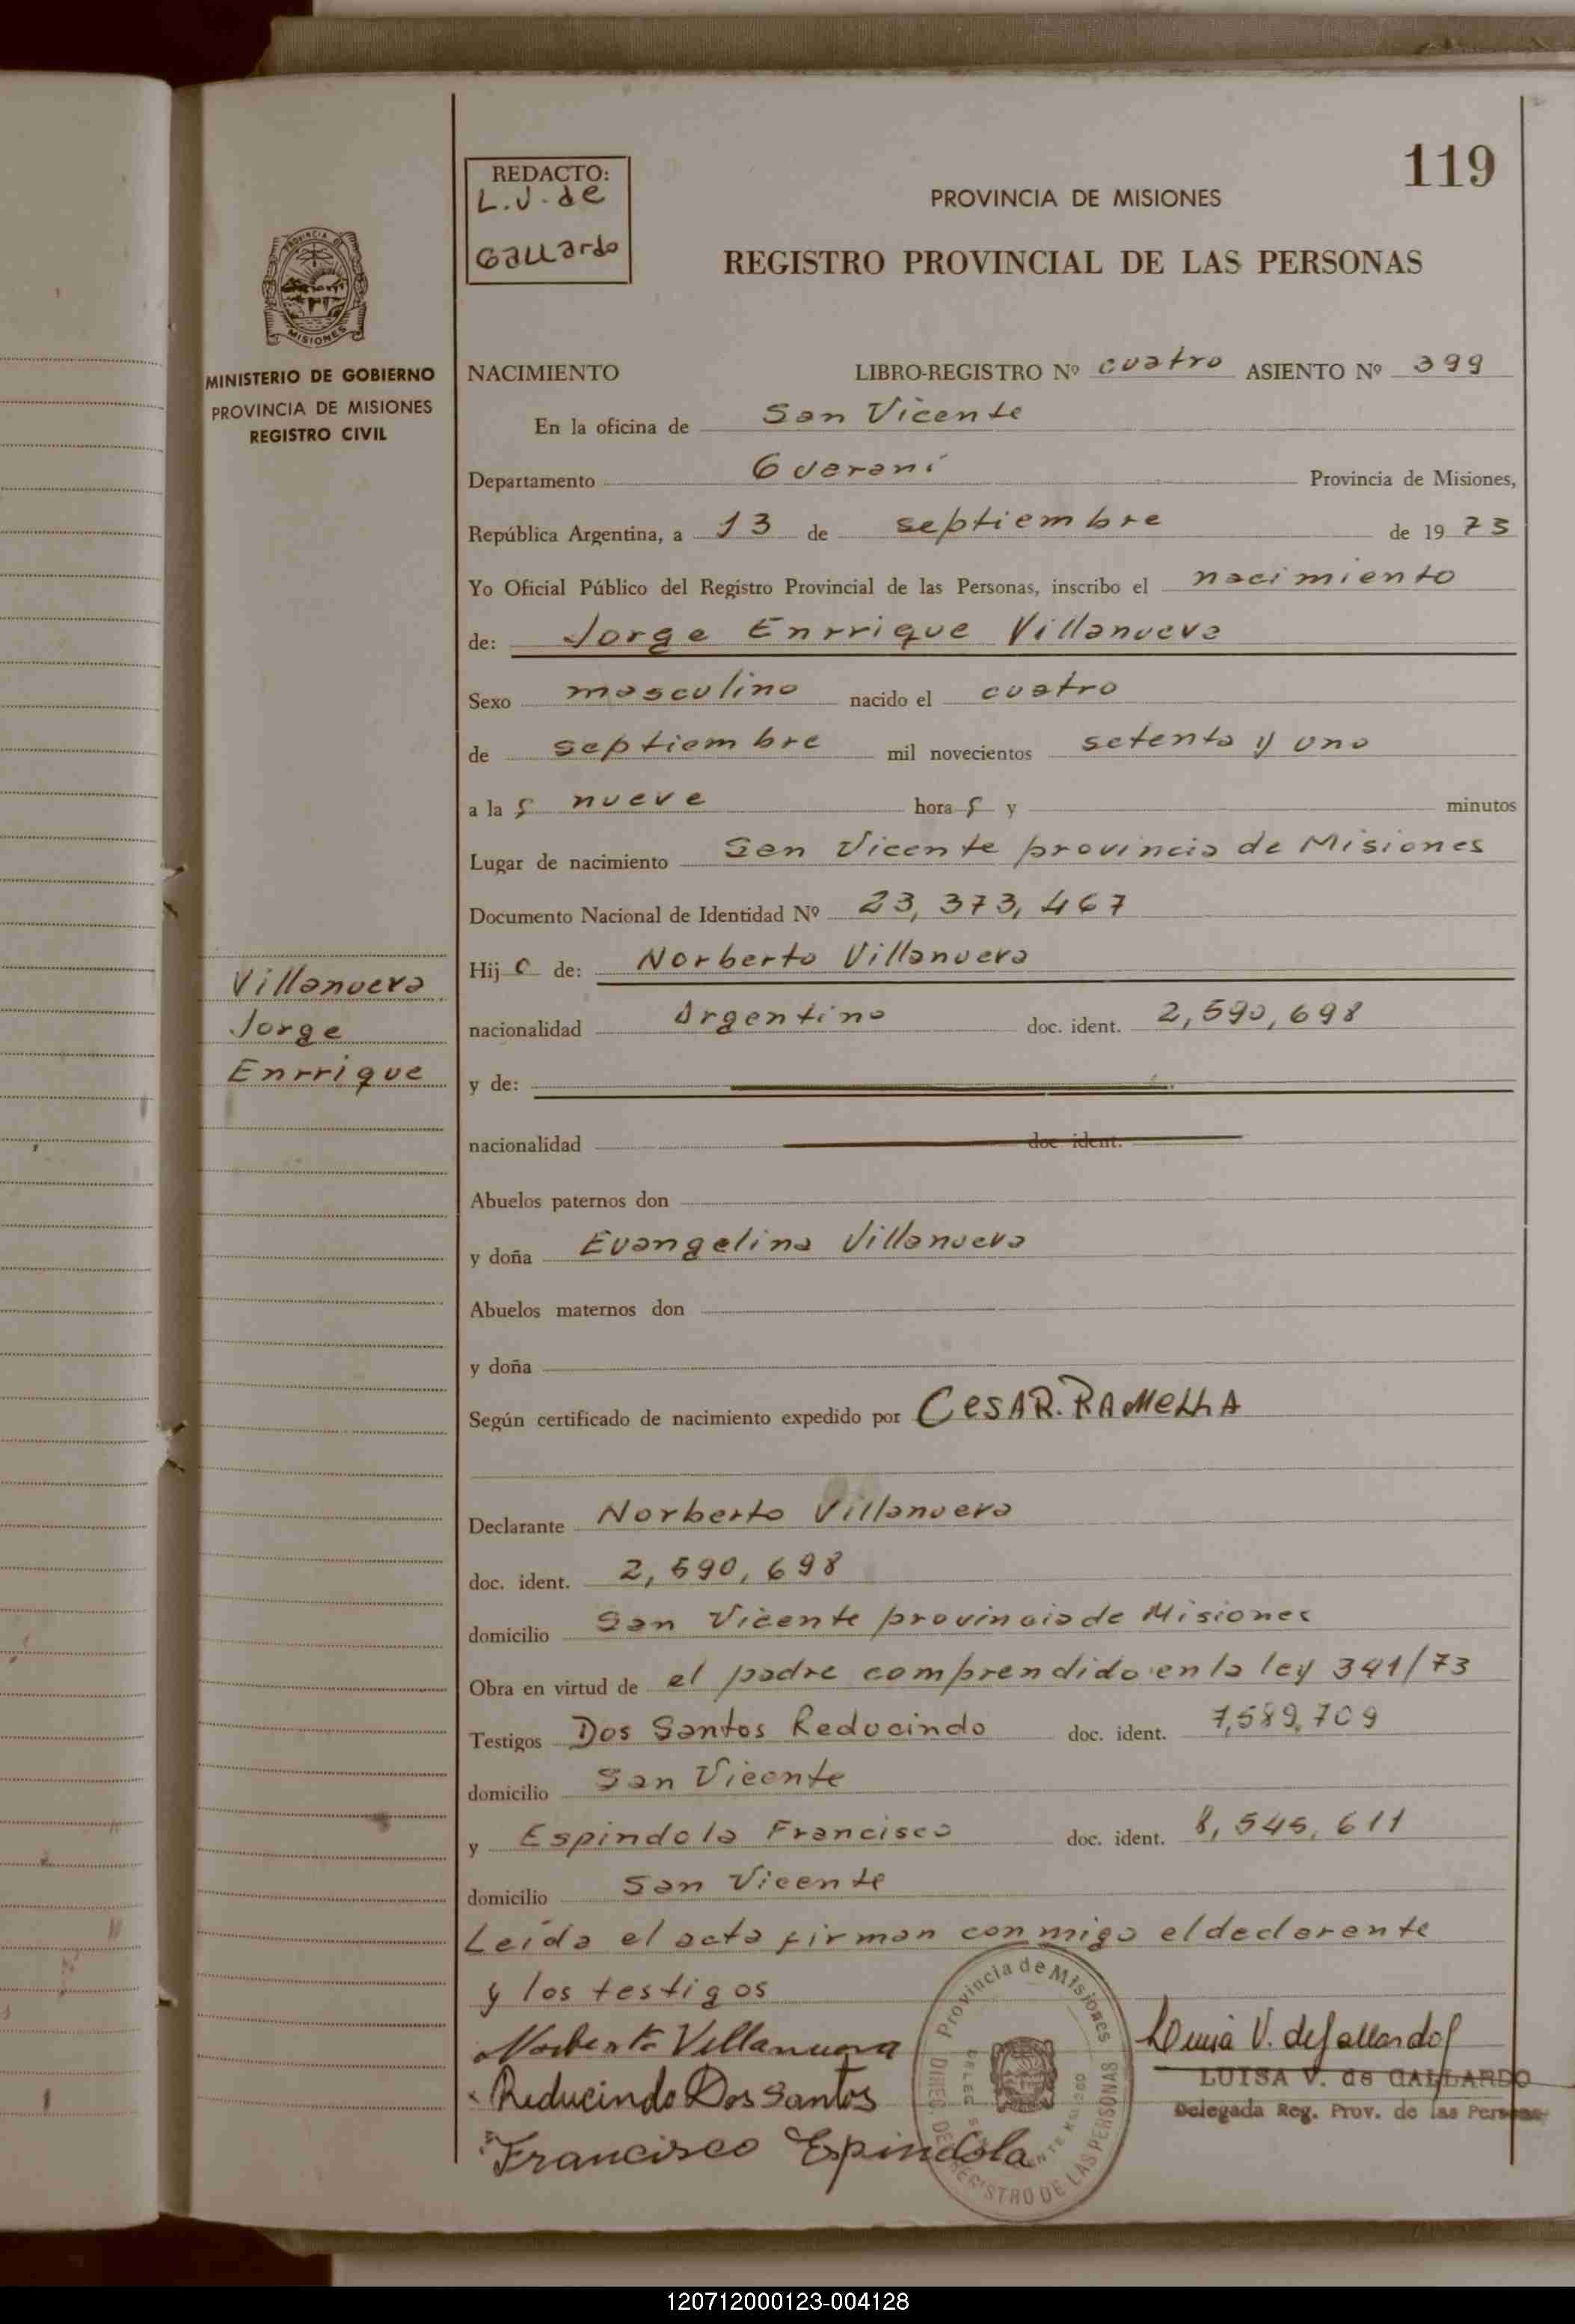 119
REDACTO:
L.V. de
Gallardo
PROVINCIA DE MISIONES
REGISTRO PROVINCIAL DE LAS PERSONAS
PROVINCIA DE
MISIONES
MINISTERIO DE GOBIERNO
PROVINCIA DE MISIONES
REGISTRO CIVIL
NACIMIENTO LIBRO-REGISTRO Nº cuatro ASIENTO Nº 399
En la oficina de San Vicente
Departamento Guaraní Provincia de Misiones,
República Argentina, a 13 de septiembre de 1973
Yo Oficial Público del Registro Provincial de las Personas, inscribo el nacimiento
de: Jorge Enrrique Villanueva
Sexo masculino nacido el cuatro
de septiembre mil novecientos setenta y uno
a la s nueve hora s y minutos
Lugar de nacimiento San Vicente provincia de Misiones
Documento Nacional de Identidad Nº 23,373,467
Villanueva
Jorge
Enrrique
Hij o de: Norberto Villanueva
nacionalidad Argentino doc. ident. 2,590,698
y de:
nacionalidad doc ident.
Abuelos paternos don
y doña Evangelina Villanueva
Abuelos maternos don
y doña
Según certificado de nacimiento expedido por CESAR. RAMELLA
Declarante Norberto Villanueva
doc. ident. 2,590,698
domicilio San Vicente provincia de Misiones
Obra en virtud de el padre comprendido en la ley 341/73
Testigos Dos Santos Reducindo doc. ident. 7,589,709
domicilio San Vicente
y Espindola Francisco doc. ident. 8,545,611
domicilio San Vicente
Leída el acta firman conmigo el declarante
y los testigos
Norberto Villanueva
Reducindo Dos Santos
Francisco Espindola
Provincia de Misiones
DIREC. DEL REGISTRO DE LAS PERSONAS
Luisa V. de Gallardo
LUISA V. de GALLARDO
Delegada Reg. Prov. de las Personas
120712000123-004128